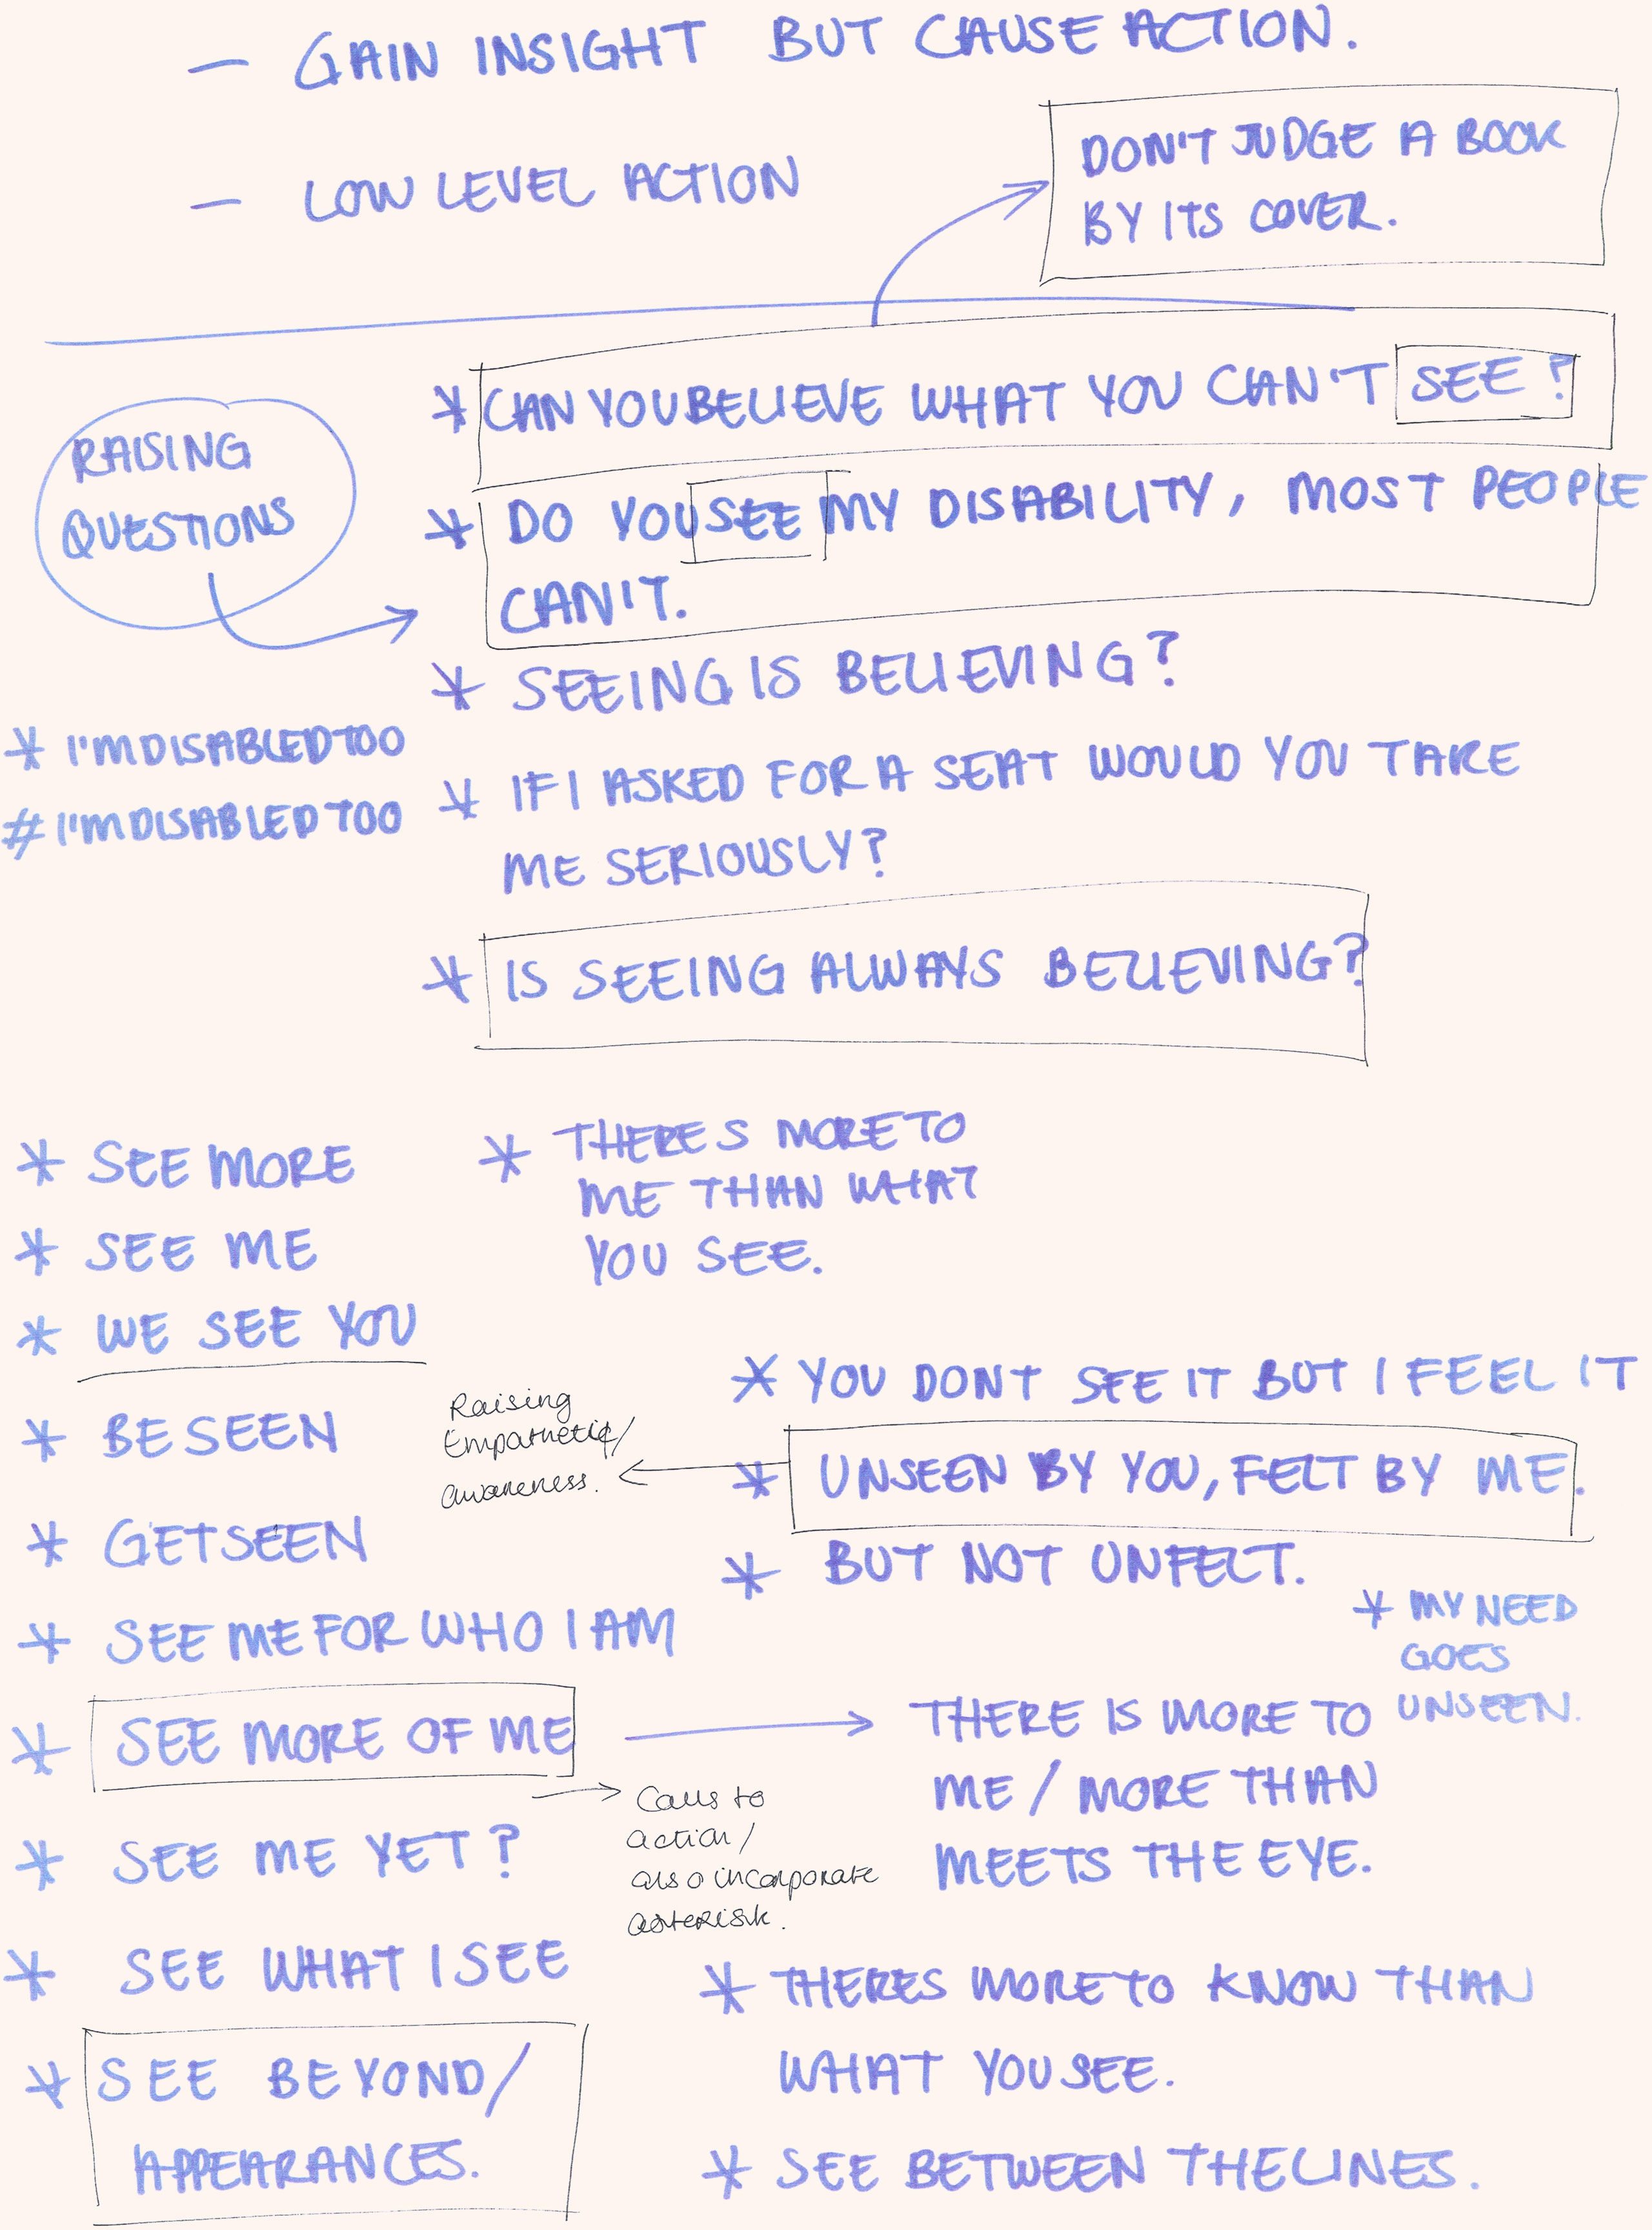 — GAIN INSIGHT BUT CAUSE ACTION.
— LOW LEVEL ACTION
DON'T JUDGE A BOOK
BY ITS COVER.
RAISING
QUESTIONS
* CAN YOU BELIEVE WHAT YOU CAN'T SEE?
* DO YOU SEE MY DISABILITY, MOST PEOPLE
CAN'T.
* SEEING IS BELIEVING?
* I'M DISABLED TOO
# I'M DISABLED TOO
* IF I ASKED FOR A SEAT WOULD YOU TAKE
ME SERIOUSLY?
* IS SEEING ALWAYS BELIEVING?
* SEE MORE
* SEE ME
* WE SEE YOU
* BE SEEN
* GET SEEN
* SEE ME FOR WHO I AM
* SEE MORE OF ME
* SEE ME YET?
* SEE WHAT I SEE
* SEE BEYOND/
APPEARANCES.
* THERES MORE TO
ME THAN WHAT
YOU SEE.
* YOU DONT SEE IT BUT I FEEL IT
* UNSEEN BY YOU, FELT BY ME.
Raising
Empathetic/
awareness.
* BUT NOT UNFELT.
* MY NEED
GOES
UNSEEN.
THERE IS MORE TO
ME / MORE THAN
MEETS THE EYE.
Calls to
action/
also incorporate
asterisk.
* THERES MORE TO KNOW THAN
WHAT YOU SEE.
* SEE BETWEEN THE LINES.